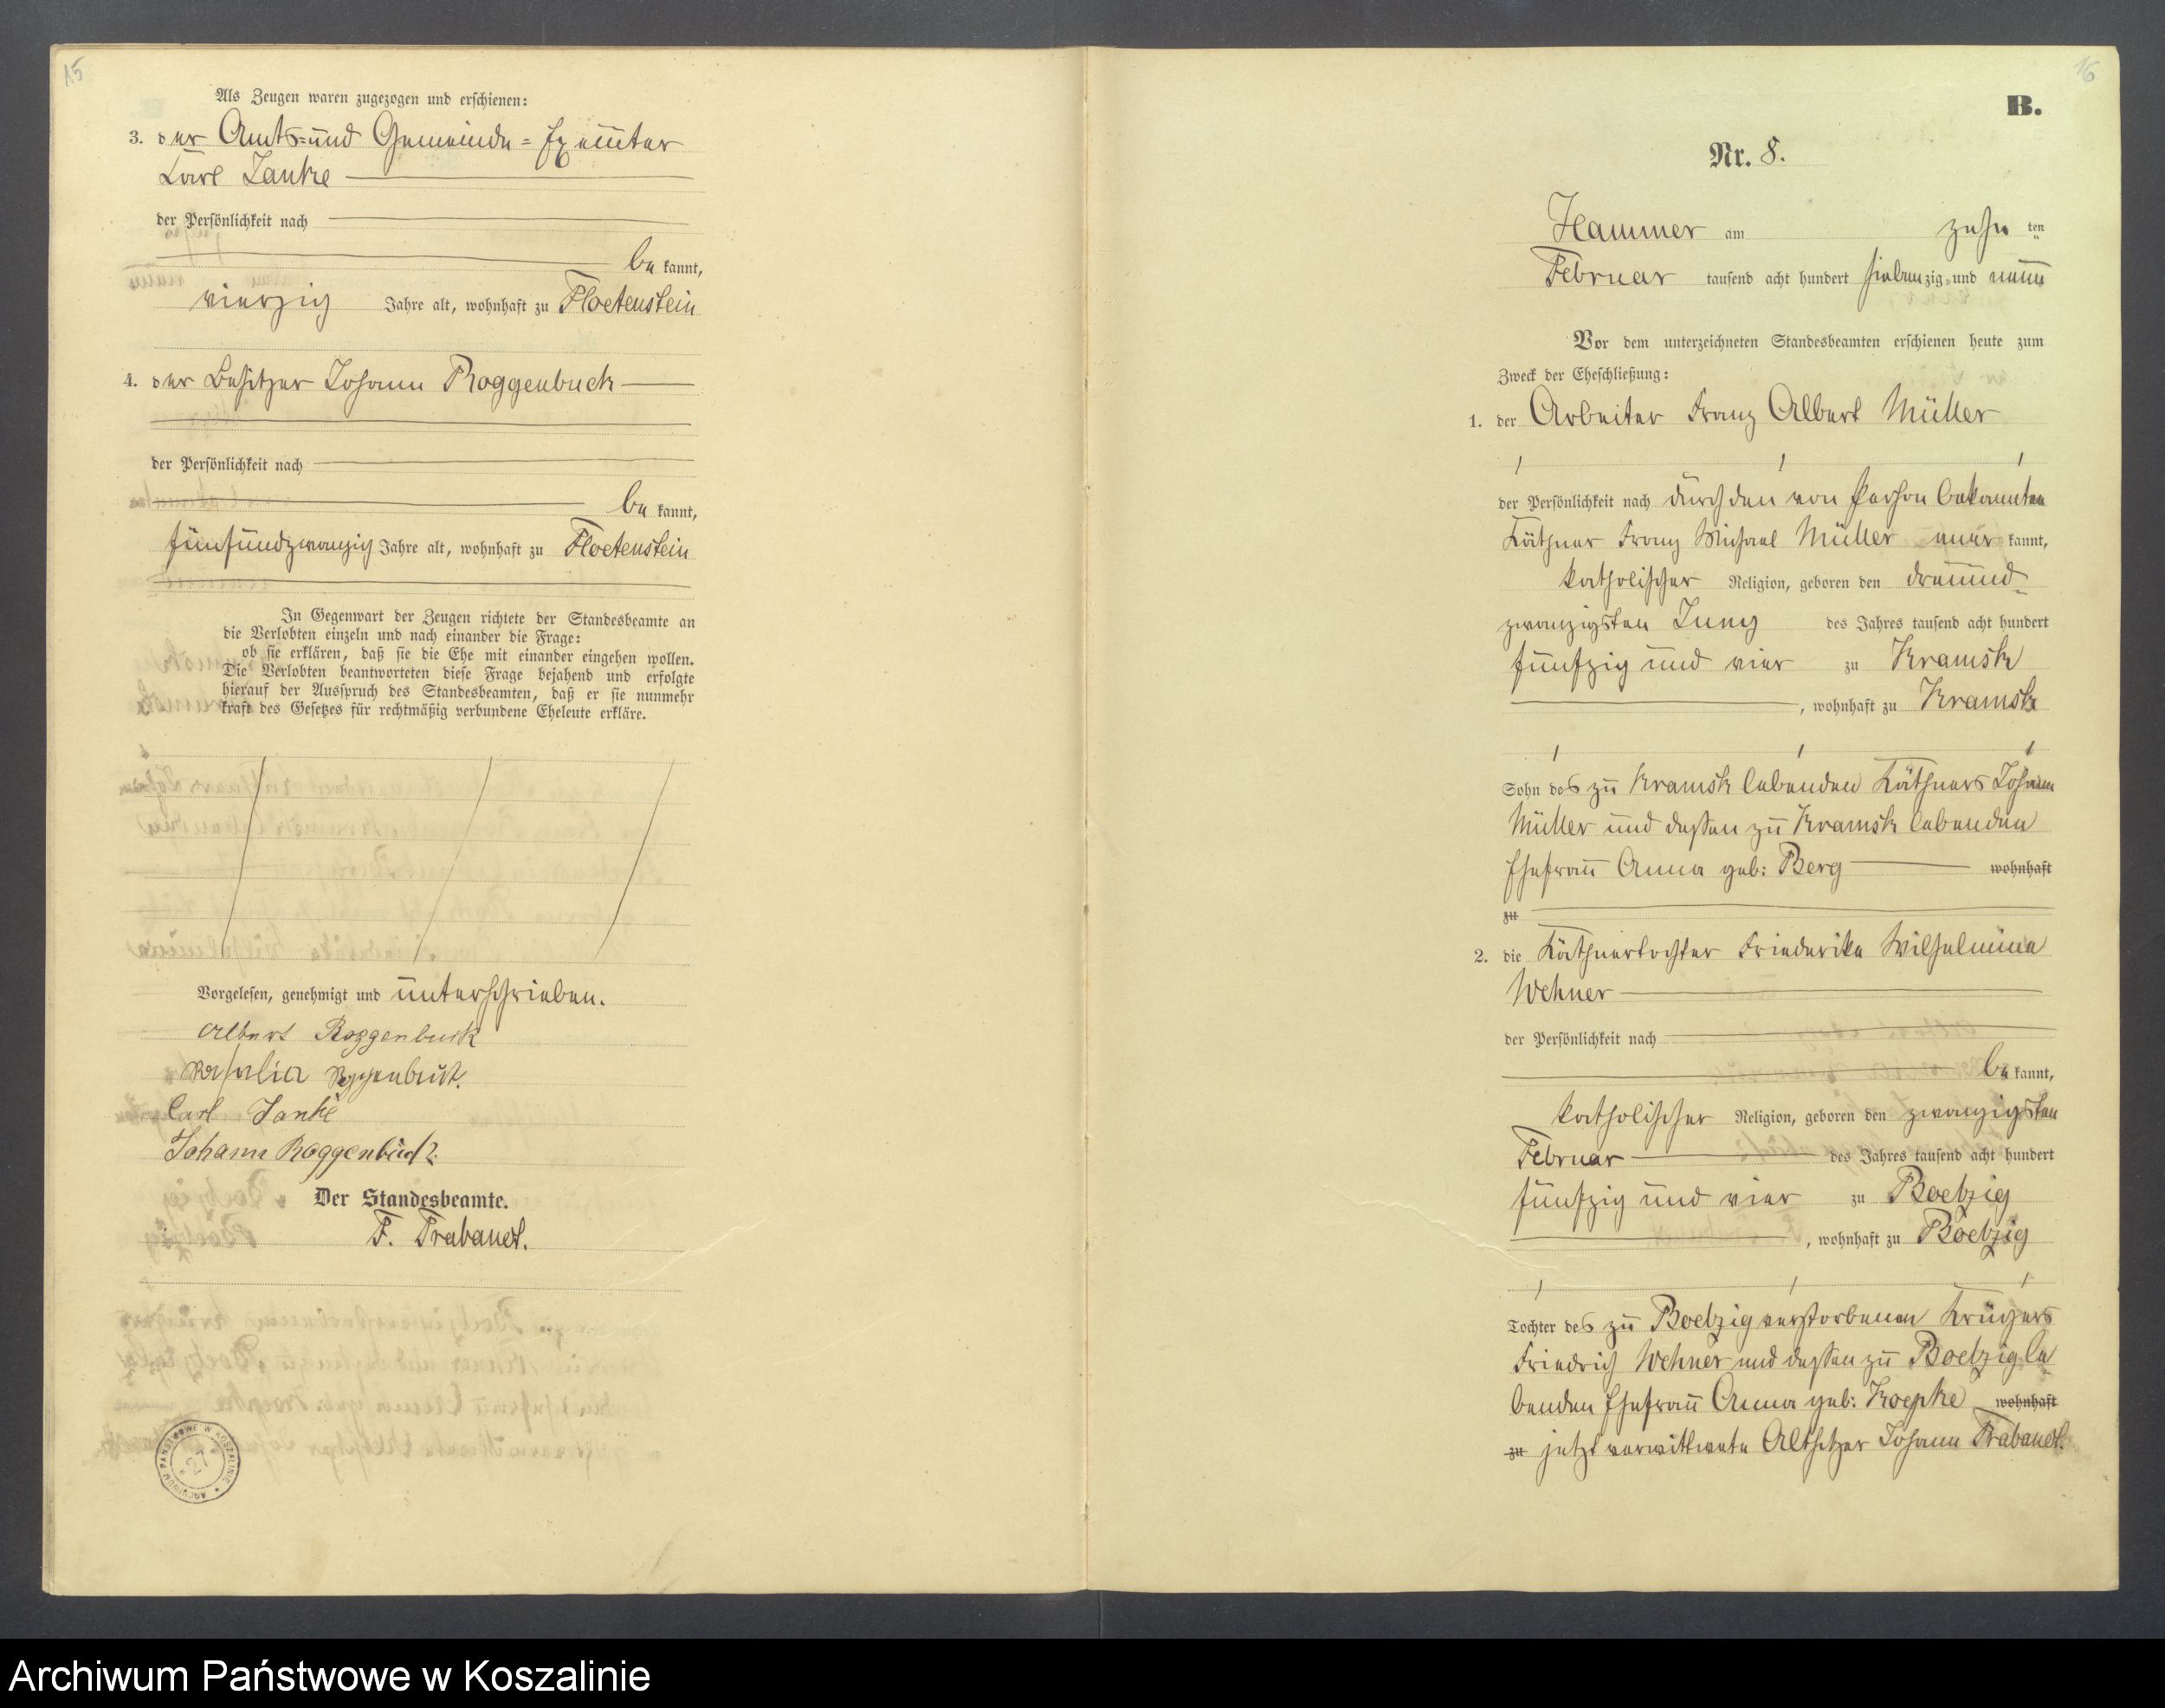 15
Als Zeugen waren zugezogen und erschienen:
3. der Amts= und Gemeinde=Executor
Carl Janke
der Persönlichkeit nach
be kannt,
vierzig Jahre alt, wohnhaft zu Floetenstein
4. der Besitzer Johann Roggenbuck
der Persönlichkeit nach
be kannt,
fünfundzwanzig Jahre alt, wohnhaft zu Floetenstein
In Gegenwart der Zeugen richtete der Standesbeamte an
die Verlobten einzeln und nach einander die Frage:
ob sie erklären, daß sie die Ehe mit einander eingehen wollen.
Die Verlobten beantworteten diese Frage bejahend und erfolgte
hierauf der Ausspruch des Standesbeamten, daß er sie nunmehr
kraft des Gesetzes für rechtmäßig verbundene Eheleute erkläre.
Vorgelesen, genehmigt und unterschrieben.
Albert Roggenbuck
Rosalia Roggenbuck.
Carl Janke
Johann Roggenbuck.
Der Standesbeamte.
F. Trabandt.
ARCHIWUM PAŃSTWOWE W KOSZALINIE
27
16
B.
Nr. 8.
Hammer am zehn ten
Februar tausend acht hundert siebenzig und neun
Vor dem unterzeichneten Standesbeamten erschienen heute zum
Zweck der Eheschließung:
1. der Arbeiter Franz Albert Müller
der Persönlichkeit nach durch den von Person bekannten
Käthner Franz Michael Müller aner kannt,
katholischer Religion, geboren den dreiund-
zwanzigsten Juny des Jahres tausend acht hundert
fünfzig und vier zu Kramsk
, wohnhaft zu Kramsk
Sohn des zu Kramsk lebenden Käthners Johann
Müller und dessen zu Kramsk lebenden
Ehefrau Anna geb: Berg wohnhaft
zu
2. die Käthnertochter Friederike Wilhelmine
Wehner
der Persönlichkeit nach
be kannt,
katholischer Religion, geboren den zwanzigsten
Februar des Jahres tausend acht hundert
fünfzig und vier zu Boelzig
, wohnhaft zu Boelzig
Tochter des zu Boelzig verstorbenen Krügers
Friedrich Wehner und dessen zu Boelzig le-
benden Ehefrau Anna geb: Koepke wohnhaft
zu jetzt verwittwete Altsitzer Johann Trabandt.
Archiwum Państwowe w Koszalinie